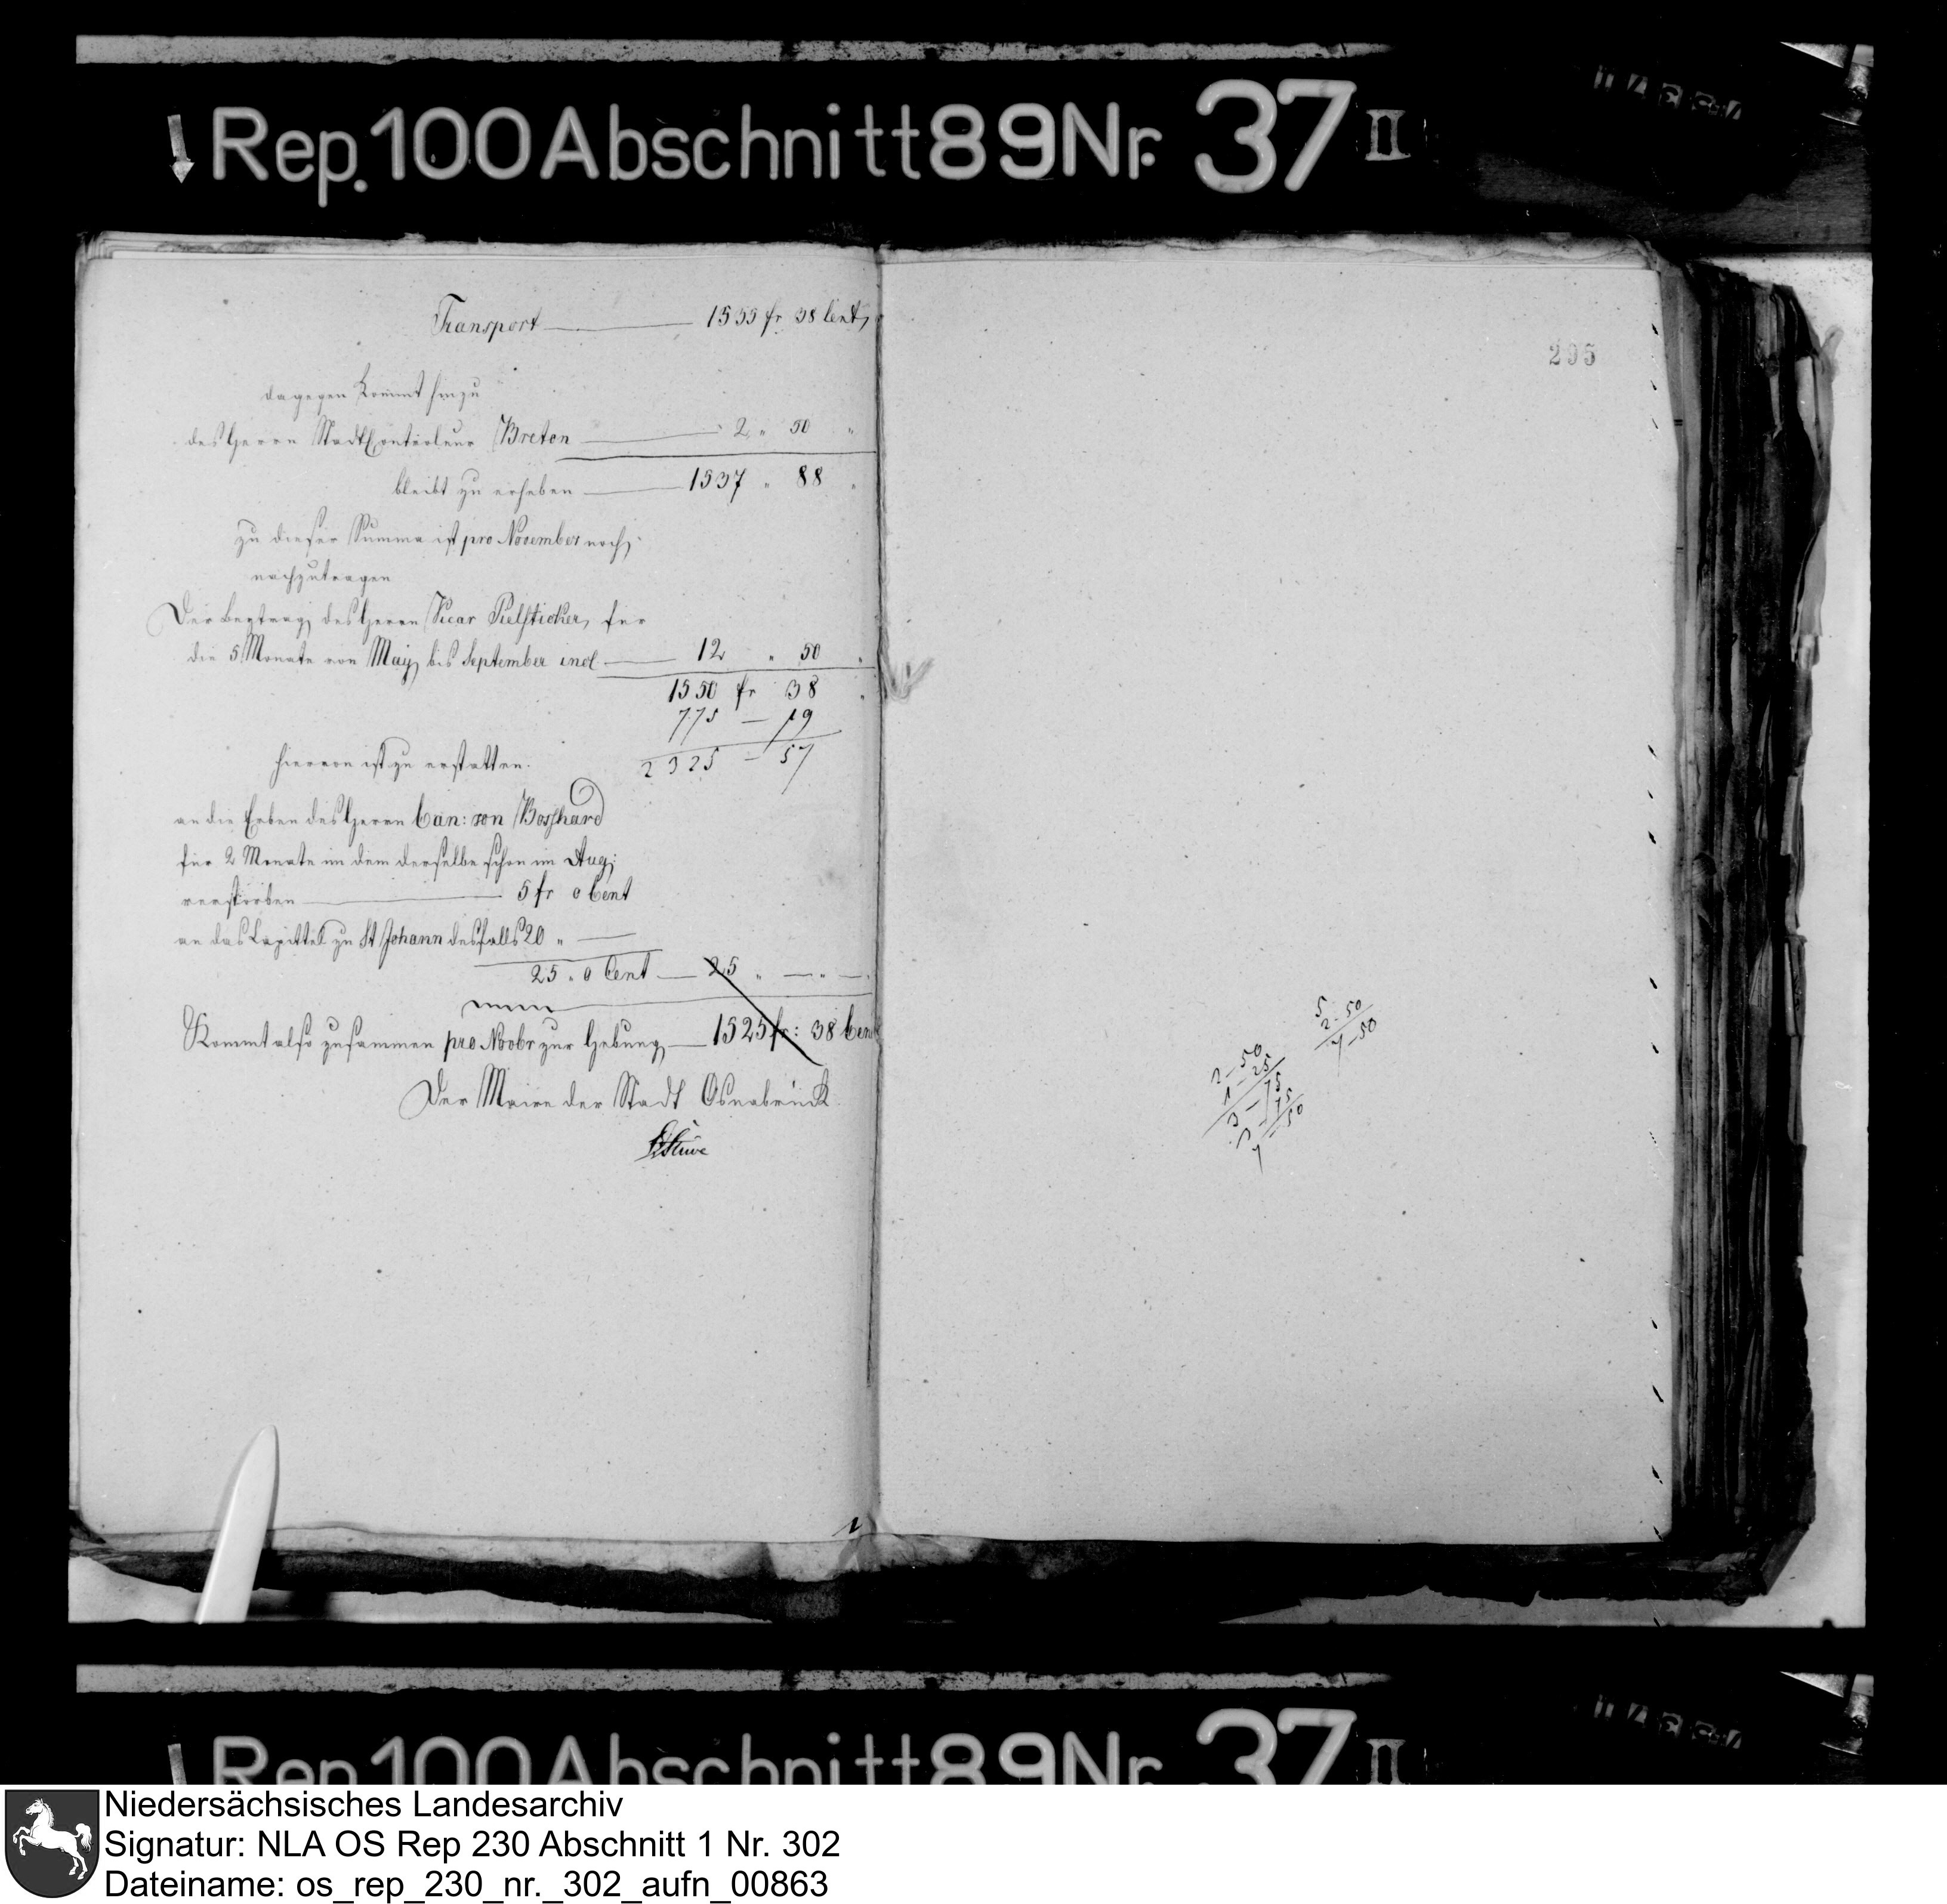 Rep. 100 Abschnitt 89 Nr. 37 II
Transport 1535 fr 38 Cent,
dagegen kommt hinzu
des Herrn Stadt Controleur Breton 2 " 50 "
bleibt zu erheben 1537 " 88 "
zu dieser Summa ist pro November noch
nachzutragen
Der Beytrag des Herrn Vicar Pielsticker, für
die 5 Monate von May bis September incl 12 " 50 "
1550 fr 38 "
775 — 19
hiervon ist zu erstatten. 2325 — 57
an die Erben des Herrn Can: von Bosshard
für 2 Monate in dem derselbe schon im Aug:
verstorben 5 fr 0 Cent
an das Capittel zu St Johann desfalls 20 " —
25 " 0 Cent — 25 " — " —
Kommt also zusammen pro Nvbr zur Hebung 1525 fr: 38 Cent
Der Maire der Stadt Osnabrück
Stüve
295
5
2 - 50
7 - 50
2 - 50
1 - 25
3 - 75
3 - 75
7 - 50
Rep. 100 Abschnitt 89 Nr. 37 II
Niedersächsisches Landesarchiv
Signatur: NLA OS Rep 230 Abschnitt 1 Nr. 302
Dateiname: os_rep_230_nr._302_aufn_00863